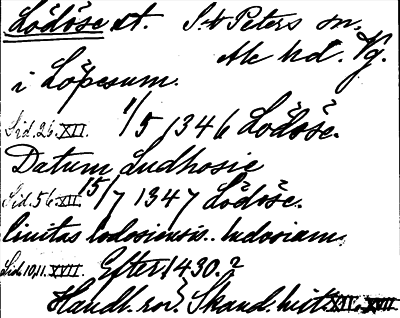 Lödöse st. S:t Peters sn.
Ale hd. Vg.
i Löpesum.
Sid. 26. XII. 1/5 1346 Lödöse.
Datum Ludhosie
Sid. 56. XII. 15/7 1347 Lödöse.
Civitas lodosiensis.. ludosiam.
Sid. 10,11. XVII. Efter 1430.?
Handl. rör. Skand. hist. XVI. XVII